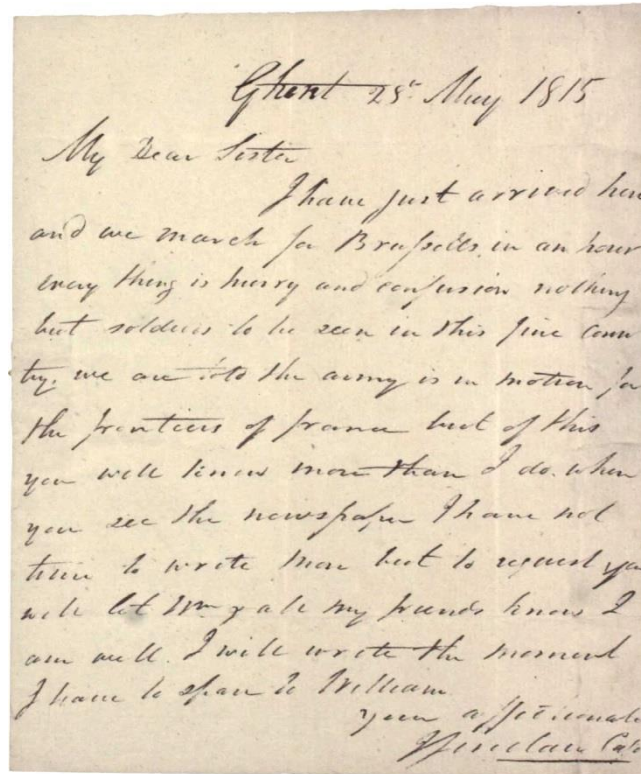 Ghent 28th May 1815
My Dear Sister
I have just arrived here
and we march for Brussells in an hour
every thing is hurry and confusion nothing
but soldiers to be seen in this fine coun
try. we are told the army is in motion for
the frontiers of france but of this
you will know more than I do. when
you see the newspaper I have not
time to write more but to request you
will let Wm & all my friends know I
am well. I will write the moment
I have to spare to William
your affectionate